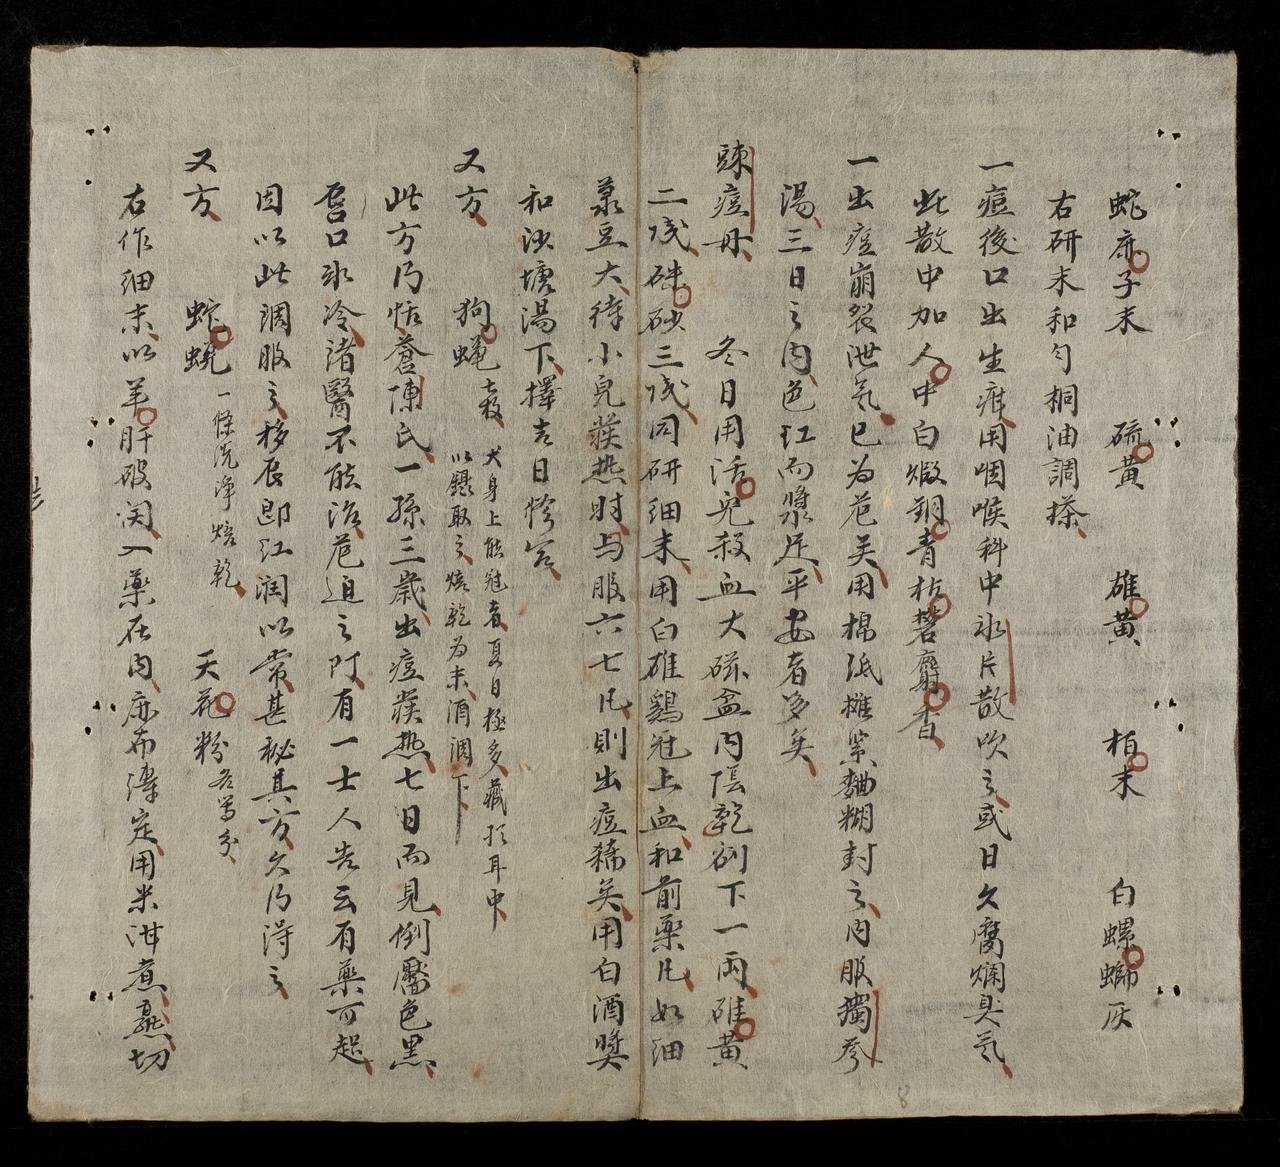 蛇床子末 硫黄 雄黄 柏末 白螺螄灰
右研末和勻桐油調搽
一痘後口出生疳用咽喉科中冰片散吹之或日久腐爛臭氣
此散中加人中白煅銅青枯礬麝香
一出痘崩裂泄氣已為危矣用棉紙攤米麯糊封之內服獨參
湯三日之內色红而漿足平安者多矣
踈痘丹 冬日用活兒殺血大磁盒內陰乾例下一兩雄黄
二戋硃砂三戋同研細末用白雄鷄冠上血和前藥凡如細
菉豆大待小兒發热时与服六七凡則出痘稀矣用白酒獎
和沙塘湯下擇吉日修合
又方 狗蝇七枚 犬身上能飛者夏日極多藏於耳中
以鑷取之焙乾為末酒調下
此方乃恬蒼陳氏一孫三歲出痘發热七日而見倒靨色黑
唇口氷冷諸醫不能治危迫之际有一士人告云有藥可起
因以此調服之移辰即红润以常甚秘其方久乃淂之
又方 蛇蜕一條洗净焙乾 天花粉各等分
右作細末以羊肝破闭入藥在内麻布縛定用米泔煮熟切
8